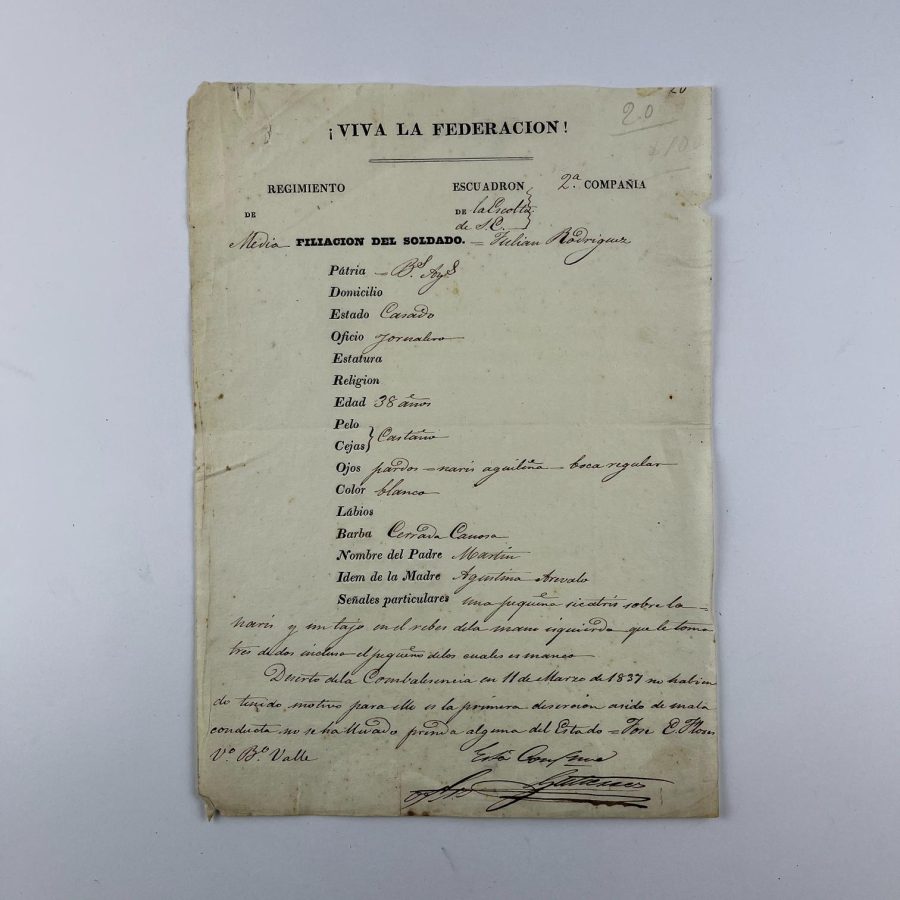 20
2.0
¡VIVA LA FEDERACION!
REGIMIENTO ESCUADRON 2ª COMPAÑIA
DE DE la Escolta
de S.E.
Media FILIACION DEL SOLDADO. = Julian Rodriguez
Pátria = Bs Ays
Domicilio
Estado Casado
Oficio Jornalero
Estatura
Religion
Edad 38 años
Pelo
Cejas } Castaño
Ojos pardos = naris aguileña = boca regular
Color blanco
Lábios
Barba Cerrada Canosa
Nombre del Padre Martin
Idem de la Madre Agustina Arevalo
Señales particulares una pequeña sicatris sobre la
naris y un tajo en el rebes dela mano isquierda que le toma
tres dedos incluso el pequeño delos cuales es manco
Deserto dela Combalesencia en 11 de Marzo de 1837 no habien
do tenido motivo para ello es la primera desercion a sido de mala
conducta no se ha llevado prenda alguna del Estado = Jose E. Flores
Vº Bº Valle Está Conforme